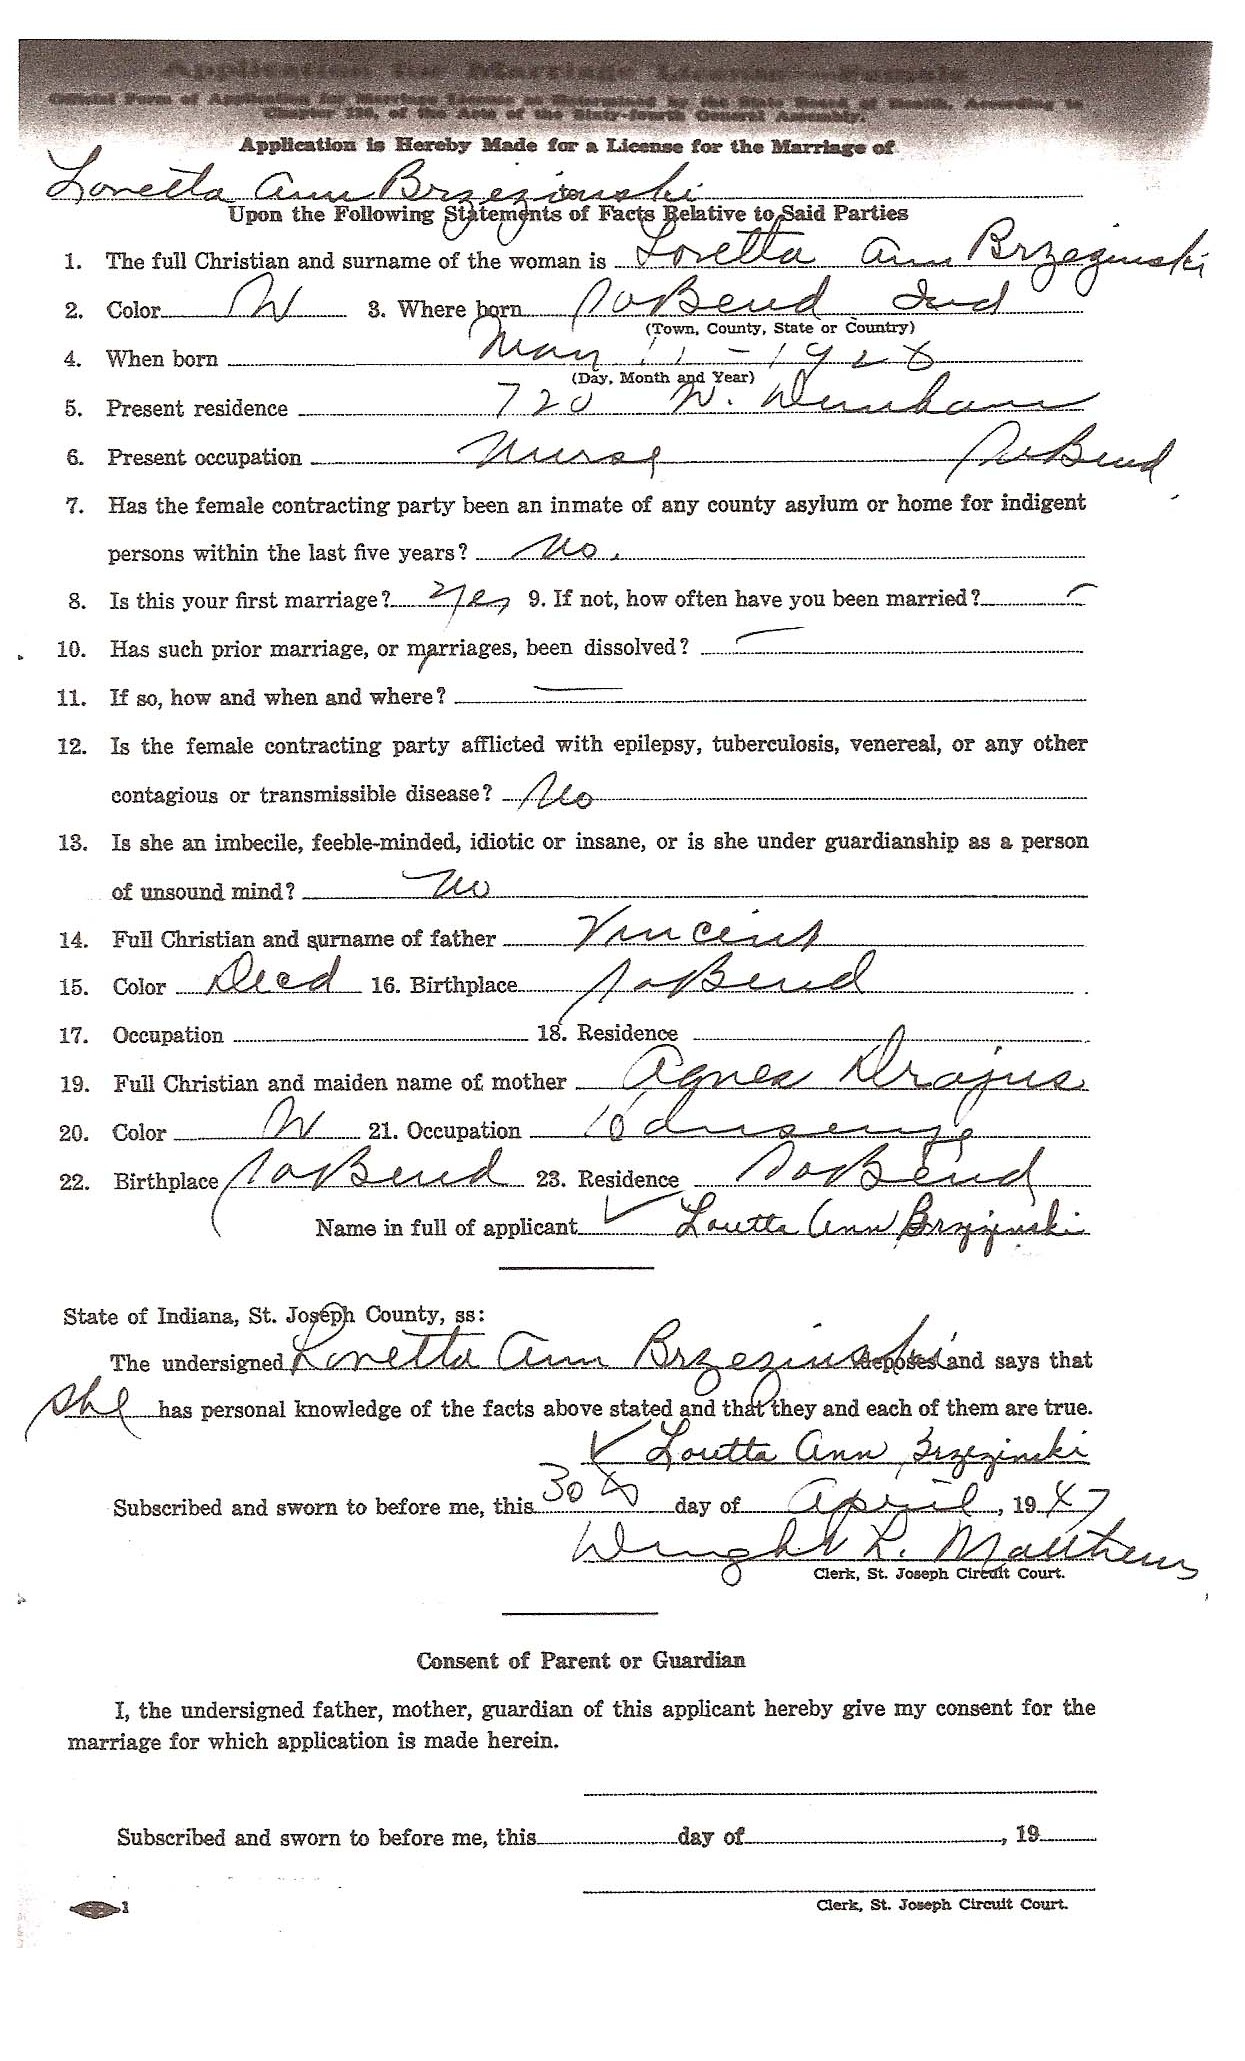 Application for Marriage License—Female
Official Form of Application for Marriage License as Determined by the State Board of Health, According to
Chapter 126, of the Acts of the Sixty-fourth General Assembly.
Application is Hereby Made for a License for the Marriage of
Loretta Ann Brzezinski
to
Upon the Following Statements of Facts Relative to Said Parties
1. The full Christian and surname of the woman is Loretta Ann Brzezinski
2. Color W 3. Where born So Bend Ind
(Town, County, State or Country)
4. When born May 11 - 1926
(Day, Month and Year)
5. Present residence 720 W. Dunham
6. Present occupation Nurse So Bend
7. Has the female contracting party been an inmate of any county asylum or home for indigent
persons within the last five years? No.
8. Is this your first marriage? Yes 9. If not, how often have you been married? —
10. Has such prior marriage, or marriages, been dissolved? —
11. If so, how and when and where? —
12. Is the female contracting party afflicted with epilepsy, tuberculosis, venereal, or any other
contagious or transmissible disease? No
13. Is she an imbecile, feeble-minded, idiotic or insane, or is she under guardianship as a person
of unsound mind? No
14. Full Christian and surname of father Vincent
15. Color Decd 16. Birthplace So Bend
17. Occupation 18. Residence
19. Full Christian and maiden name of mother Agnes Drajus
20. Color W 21. Occupation
22. Birthplace So Bend 23. Residence So Bend
Name in full of applicant ✓ Loretta Ann Brzezinski
State of Indiana, St. Joseph County, ss:
The undersigned Loretta Ann Brzezinski deposes and says that
she has personal knowledge of the facts above stated and that they and each of them are true.
✓ Loretta Ann Brzezinski
Subscribed and sworn to before me, this 30th day of April, 1947
Wright R. Matthews
Clerk, St. Joseph Circuit Court.
Consent of Parent or Guardian
I, the undersigned father, mother, guardian of this applicant hereby give my consent for the
marriage for which application is made herein.
Subscribed and sworn to before me, this day of , 19
Clerk, St. Joseph Circuit Court.
1